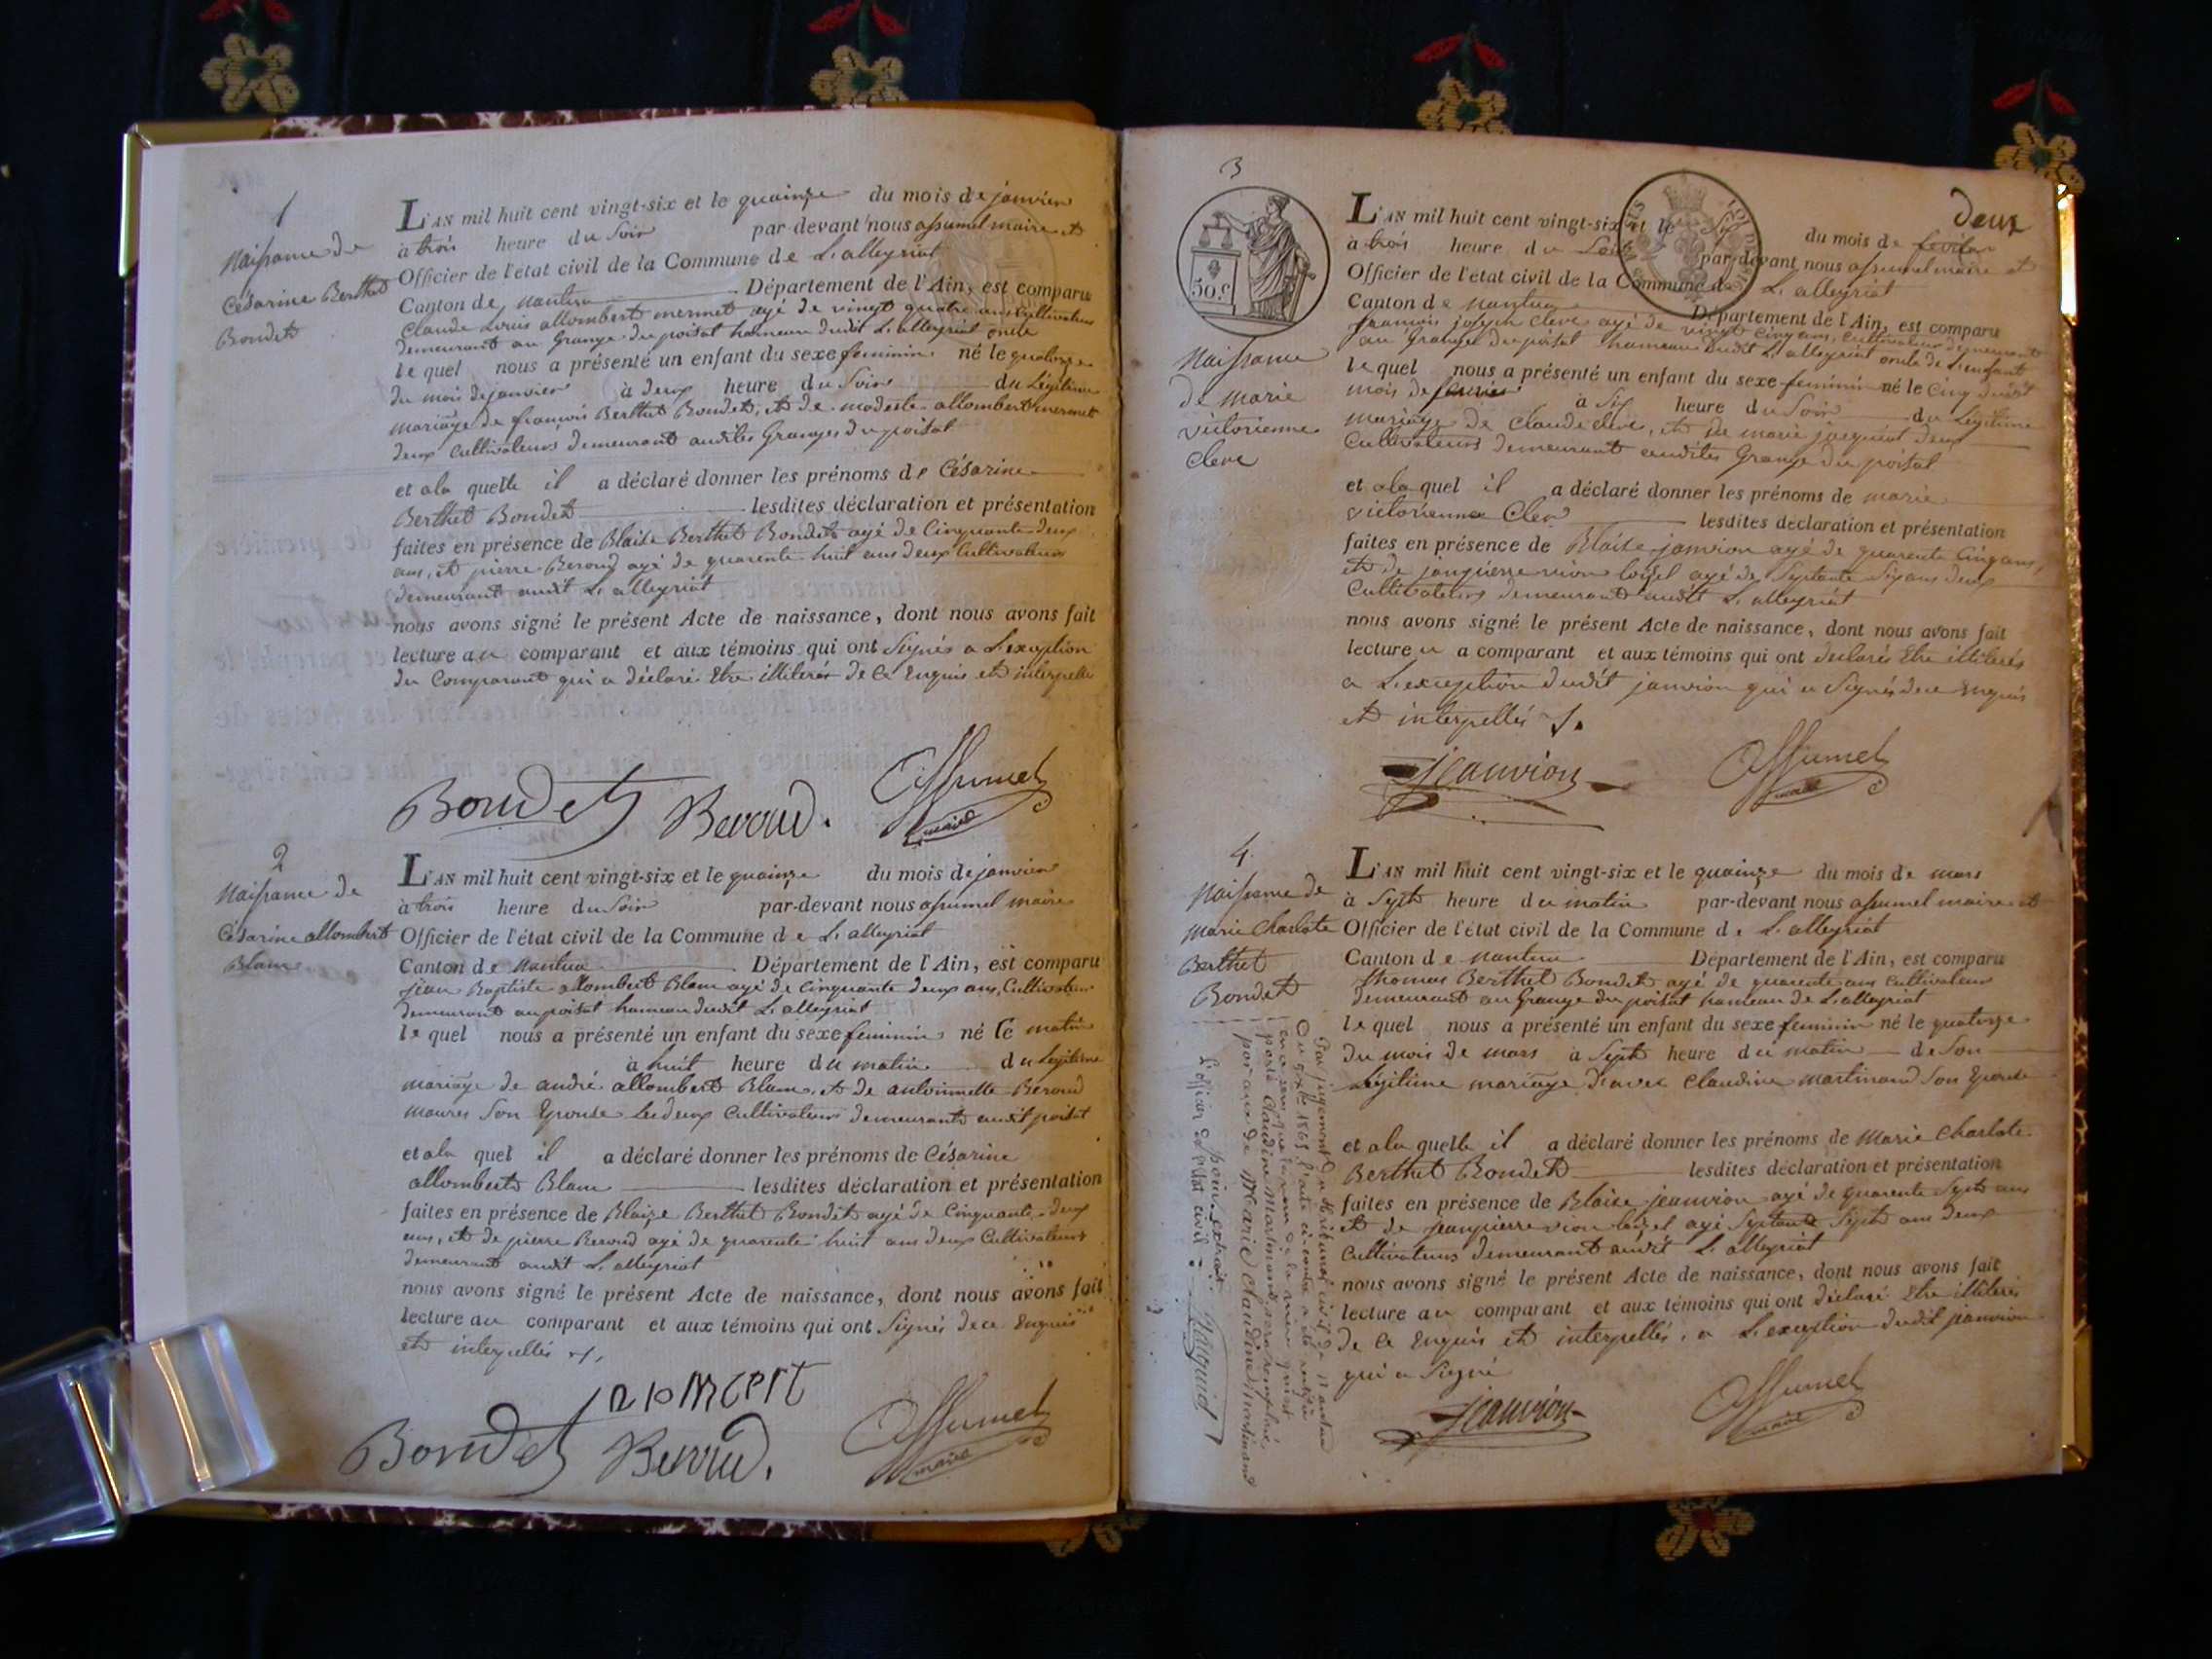 1
Naissance de
Césarine Berthet
Bondet
L'AN mil huit cent vingt-six et le quainze du mois de janvier
à trois heure du soir par-devant nous assumel maire et
Officier de l'état civil de la Commune de L'alleyriat
Canton de nantua Département de l'Ain, est comparu
Claude Louis allombert mermet agé de vingt quatre ans Cultivateur
demeurant au Grange du poisat hameau dudit L'alleyriat oncle
le quel nous a présenté un enfant du sexe feminin né le quatorze
du mois de janvier à deux heure du soir du Légitime
mariage de françois Berthet Bondet, et de modeste allombert mermet
deux Cultivateurs demeurant audites Granges du poisat
et a la quelle il a déclaré donner les prénoms de Césarine
Berthet Bondet lesdites déclaration et présentation
faites en présence de Blaise Berthet Bondet agé de Cinquante deux
ans, et pierre Beroud agé de quarente huit ans deux Cultivateurs
demeurant audit L'alleyriat
nous avons signé le présent Acte de naissance, dont nous avons fait
lecture au comparant et aux témoins qui ont Signés a L'exeption
du Comparant qui a déclaré Etre illiterés de ce Enquis et interpellé
Bondet Beroud. Assumel
maire
2
Naissance de
Césarine allombert
Blanc
L'AN mil huit cent vingt-six et le quainze du mois de janvier
à trois heure du soir par-devant nous assumel maire
Officier de l'état civil de la Commune de L'alleyriat
Canton de Nantua Département de l'Ain, est comparu
jean Baptiste allombert Blanc agé de Cinquante deux ans, Cultivateur
demeurant au poisat hameau dudit L'alleyriat
le quel nous a présenté un enfant du sexe feminin né le matin
à huit heure du matin du Legitime
mariage de andré allombert Blanc, et de antoinnette Beroud
maures son Epouse Les deux Cultivateurs demeurants audit poisat
et a la quel il a déclaré donner les prénoms de Césarine
allombert Blanc lesdites déclaration et présentation
faites en présence de Blaize Berthet Bondet agé de Cinquante deux
ans, et de pierre Beroud agé de quarente huit ans deux Cultivateurs
demeurant audit L'alleyriat
nous avons signé le présent Acte de naissance, dont nous avons fait
lecture au comparant et aux témoins qui ont Signés de ce Enquis
et interpellés
Bondet Beroud. Assumel
maire
3
deux
50.c
Naissance
de marie
victorienne
Cleve
L'AN mil huit cent vingt-six et le six du mois de fevrier
à trois heure du soir par-devant nous assumel maire et
Officier de l'état civil de la Commune de L'alleyriat
Canton de nantua Département de l'Ain, est comparu
francois joseph Cleve agé de vingt Cinq ans, Cultivateur demeurant
au Granges du poisat hameau dudit L'alleyriat oncle de L'enfant
le quel nous a présenté un enfant du sexe feminin né le Cinq dudit
mois de fevrier à six heure du soir du Légitime
mariage de Claude Cleve, et de marie jacquiot deux
Cultivateurs demeurant audites Grange du poisat
et a la quel il a déclaré donner les prénoms de marie
victorienne Cleve lesdites déclaration et présentation
faites en présence de Blaise janvion agé de quarente Cinq ans,
et de janpierre vion loisel agé de Septente Six ans deux
Cultivateurs demeurant audit L'alleyriat
nous avons signé le présent Acte de naissance, dont nous avons fait
lecture u a comparant et aux témoins qui ont declarés Etre illiterés
a L'exception dudit janvion qui a Signés de ce Enquis
et interpellés
Jeanvion Assumel
maire
4
Naissance de
marie Charlote
Berthet
Bondet
L'AN mil huit cent vingt-six et le quainze du mois de mars
à Sept heure du matin par-devant nous assumel maire et
Officier de l'état civil de la Commune de L'alleyriat
Canton de nantua Département de l'Ain, est comparu
thomas Berthet Bondet agé de quarente ans Cultivateur
demeurant au Grange du poisat hameau de L'alleyriat
le quel nous a présenté un enfant du sexe feminin né le quatorze
du mois de mars à Sept heure du matin de Son
Légitime mariage d'avec Claudine martinand Son Epouse
et a la quelle il a déclaré donner les prénoms de Marie Charlote
Berthet Bondet lesdites déclaration et présentation
faites en présence de Blaise jeanvion agé de quarente Sept ans
et de jeanpierre vion loizel agé Septente Sept ans deux
Cultivateurs demeurant audit L'alleyriat
nous avons signé le présent Acte de naissance, dont nous avons fait
lecture au comparant et aux témoins qui ont déclaré Etre illiterés
de ce Enquis et interpellés, a L'exception dudit jeanvion
qui a Signé
Jeanvion Assumel
maire
Par jugement du tribunal civil de nantua
1865 l'acte ci-contre a été rectifié
en ce sens que le nom de la mère qui est
porté Claudine Martinand sera remplacé
par celui de Marie Claudine Martinand
pour extrait
L'officier de l'état civil